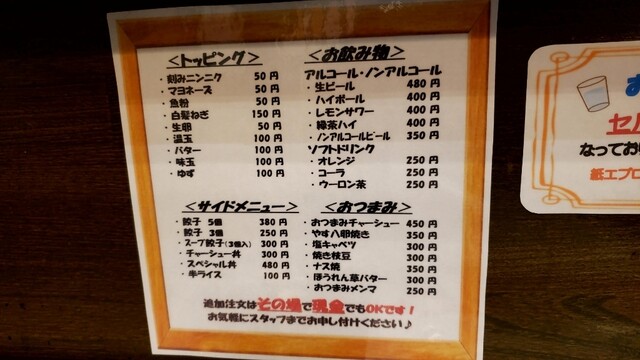 ＜トッピング＞
・刻みニンニク 50円
・マヨネーズ 50円
・魚粉 50円
・白髪ねぎ 150円
・生卵 50円
・温玉 100円
・バター 100円
・味玉 100円
・ゆず 100円
＜お飲み物＞
アルコール・ノンアルコール
・生ビール 480円
・ハイボール 400円
・レモンサワー 400円
・緑茶ハイ 400円
・ノンアルコールビール 350円
ソフトドリンク
・オレンジ 250円
・コーラ 250円
・ウーロン茶 250円
＜サイドメニュー＞
・餃子 5個 380円
・餃子 3個 250円
・スープ餃子(3個入) 300円
・チャーシュー丼 300円
・スペシャル丼 480円
・半ライス 100円
＜おつまみ＞
・おつまみチャーシュー 450円
・やす八卵焼き 350円
・塩キャベツ 300円
・焼き枝豆 300円
・ナス焼 350円
・ほうれん草バター 300円
・おつまみメンマ 250円
追加注文はその場で現金でもOKです！
お気軽にスタッフまでお申し付けください♪
お
セル
なってお
紙エプロ